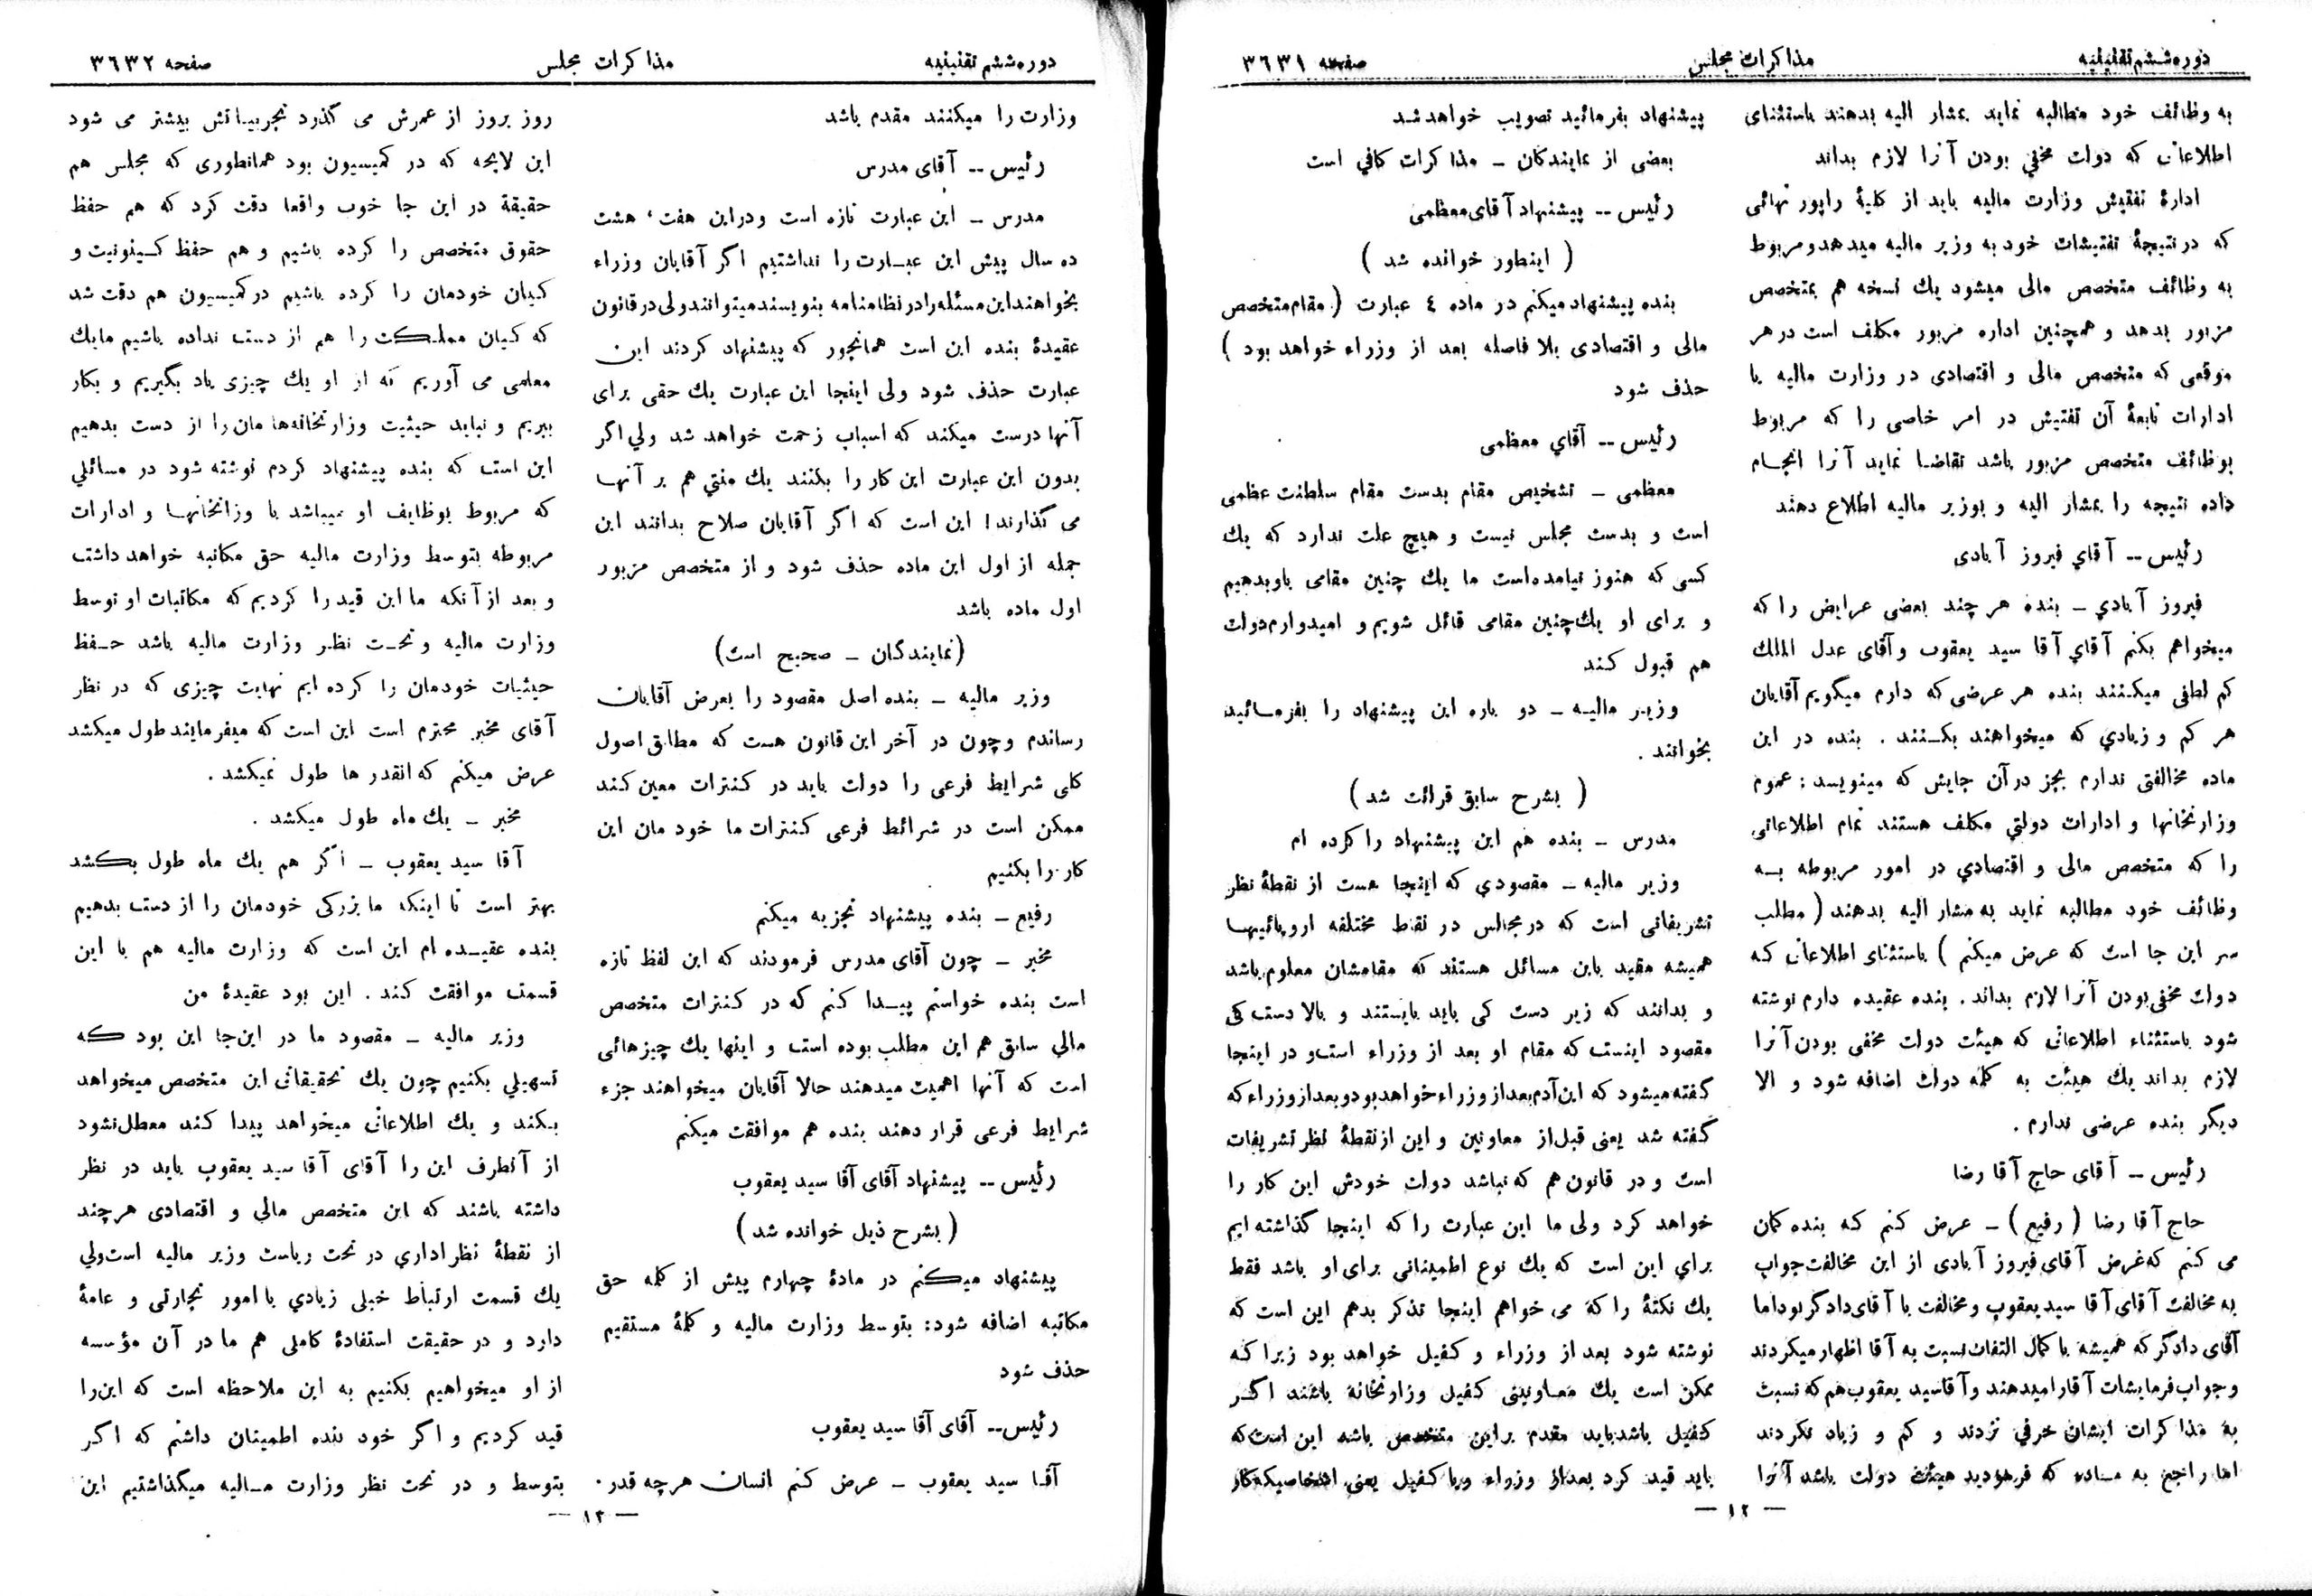 دوره ششم تقنینیه
مذاکرات مجلس
صفحه ۳۶۳۱
به وظائف خود مطالبه نماید بمشار الیه بدهند باستثنای
اطلاعاتی که دولت مخفي بودن آنرا لازم بداند
ادارهٔ تفتیش وزارت مالیه باید از کلیهٔ راپور نهائی
که در نتیجهٔ تفتیشات خود به وزیر مالیه میدهد و مربوط
به وظائف متخصص مالی میشود یك نسخه هم بمتخصص
مزبور بدهد و همچنین اداره مزبور مکلف است در هر
موقعی که متخصص مالی و اقتصادی در وزارت مالیه یا
ادارات تابعهٔ آن تفتیش در امر خاصی را که مربوط
بوظائف متخصص مزبور باشد تقاضا نماید آنرا انجام
داده نتیجه را بمشار الیه و بوزیر مالیه اطلاع دهند
رئیس -- آقاي فیروز آبادی
فیروز آبادي – بنده هر چند بعضی عرایض را که
میخواهم بکنم آقاي آقا سید یعقوب و آقای عدل الملك
کم لطفی میکنند بنده هر عرضی که دارم میگویم آقایان
هر کم و زیادي که میخواهند بکنند . بنده در این
ماده مخالفتی ندارم بجز در آن جایش که مینویسد : عموم
وزارتخانها و ادارات دولتي مکلف هستند تمام اطلاعاتی
را که متخصص مالی و اقتصادي در امور مربوطه به
وظائف خود مطالبه نماید به مشار الیه بدهند ( مطلب
سر این جا است که عرض میکنم ) باستثنای اطلاعاتی که
دولت مخفی بودن آنرا لازم بداند . بنده عقیده دارم نوشته
شود باستثناء اطلاعاتی که هیئت دولت مخفی بودن آنرا
لازم بداند یك هیئت به کلمه دولت اضافه شود و الا
دیگر بنده عرضی ندارم .
رئیس – آقای حاج آقا رضا
حاج آقا رضا ( رفیع ) – عرض کنم که بنده گمان
می کنم که غرض آقای فیروز آبادی از این مخالفت جواب
به مخالفت آقای آقا سید یعقوب و مخالفت با آقای دادگر بود اما
آقای دادگر که همیشه با کمال التفات نسبت به آقا اظهار میکردند
و جواب فرمایشات آقا را میدهند و آقا سید یعقوب هم که نسبت
به مذاکرات ایشان حرفي نزدند و کم و زیاد نکردند
اما راجع به ماده که فرمودید هیئت دولت باشد آنرا
پیشنهاد بفرمائید تصویب خواهد شد
بعضی از نمایندگان – مذاکرات کافي است
رئیس -- پیشنهاد آقای معظمی
( اینطور خوانده شد )
بنده پیشنهاد میکنم در ماده ٤ عبارت ( مقام متخصص
مالی و اقتصادی بلا فاصله بعد از وزراء خواهد بود )
حذف شود
رئیس -- آقاي معظمی
معظمی – تشخیص مقام بدست مقام سلطنت عظمی
است و بدست مجلس نیست و هیچ علت ندارد که یك
کسی که هنوز نیامده است ما یك چنین مقامی باو بدهیم
و برای او یك چنین مقامی قائل شویم و امیدوارم دولت
هم قبول کند
وزیر مالیه – دو باره این پیشنهاد را بفرمائید
بخوانند .
( بشرح سابق قرائت شد )
مدرس – بنده هم این پیشنهاد را کرده ام
وزیر مالیه – مقصودي که اینجا هست از نقطهٔ نظر
تشریفاتی است که در مجالس در نقاط مختلفه اروپائیها
همیشه مقید باین مسائل هستند که مقامشان معلوم باشد
و بدانند که زیر دست کی باید بایستند و بالا دست کی
مقصود اینست که مقام او بعد از وزراء است و در اینجا
گفته میشود که این آدم بعد از وزراء خواهد بود و بعد از وزراء که
گفته شد یعنی قبل از معاونین و این از نقطهٔ نظر تشریفات
است و در قانون هم که نباشد دولت خودش این کار را
خواهد کرد ولی ما این عبارت را که اینجا گذاشته ایم
براي این است که یك نوع اطمینانی برای او باشد فقط
یك نکتهٔ را که می خواهم اینجا تذکر بدهم این است که
نوشته شود بعد از وزراء و کفیل خواهد بود زیرا که
ممکن است یك معاونینی کفیل وزارتخانه باشند اگر
کفیل باشد باید مقدم بر این متخصص باشد این است که
باید قید کرد بعد از وزراء و یا کفیل یعنی اشخاصیکه کار
— ۱۲ —
دوره ششم تقنینیه
مذاکرات مجلس
صفحه ۳۶۳۲
وزارت را میکنند مقدم باشد
رئیس -- آقای مدرس
مدرس – این عبارت تازه است و در این هفت ، هشت
ده سال پیش این عبارت را نداشتیم اگر آقایان وزراء
بخواهند این مسئله را در نظامنامه بنویسند میتوانند ولی در قانون
عقیدهٔ بنده این است همانجور که پیشنهاد کردند این
عبارت حذف شود ولی اینجا این عبارت یك حقی برای
آنها درست میکند که اسباب زحمت خواهد شد ولي اگر
بدون این عبارت این کار را بکنند یك منتي هم بر آنها
می گذارند ! این است که اگر آقایان صلاح بدانند این
جمله از اول این ماده حذف شود و از متخصص مزبور
اول ماده باشد
(نمایندگان – صحیح است)
وزیر مالیه – بنده اصل مقصود را بعرض آقایان
رساندم و چون در آخر این قانون هست که مطابق اصول
کلی شرایط فرعی را دولت باید در کنترات معین کند
ممکن است در شرائط فرعی کنترات ما خودمان این
کار را بکنیم
رفیع – بنده پیشنهاد تجزیه میکنم
مخبر – چون آقای مدرس فرمودند که این لفظ تازه
است بنده خواستم پیدا کنم که در کنترات متخصص
مالي سابق هم این مطلب بوده است و اینها یك چیزهائی
است که آنها اهمیت میدهند حالا آقایان میخواهند جزء
شرایط فرعی قرار دهند بنده هم موافقت میکنم
رئیس -- پیشنهاد آقای آقا سید یعقوب
( بشرح ذیل خوانده شد )
پیشنهاد میکنم در مادهٔ چهارم پیش از کلمه حق
مکاتبه اضافه شود : بتوسط وزارت مالیه و کلمهٔ مستقیم
حذف شود
رئیس-- آقای آقا سید یعقوب
آقا سید یعقوب – عرض کنم انسان هر چه قدر
روز بروز از عمرش می گذرد تجربیاتش بیشتر می شود
این لایحه که در کمیسیون بود همانطوری که مجلس هم
حقیقة در این جا خوب واقعا دقت کرد که هم حفظ
حقوق متخصص را کرده باشیم و هم حفظ کینونیت و
کیان خودمان را کرده باشیم در کمیسیون هم دقت شد
که کیان مملکت را هم از دست نداده باشیم ما یك
معلمی می آوریم که از او یك چیزی یاد بگیریم و بکار
ببریم و نباید حیثیت وزارتخانه‌ها مان را از دست بدهیم
این است که بنده پیشنهاد کردم نوشته شود در مسائلي
که مربوط بوظایف او میباشد با وزاتخانها و ادارات
مربوطه بتوسط وزارت مالیه حق مکاتبه خواهد داشت
و بعد از آنکه ما این قید را کردیم که مکاتبات او توسط
وزارت مالیه و تحت نظر وزارت مالیه باشد حفظ
حیثیات خودمان را کرده ایم نهایت چیزی که در نظر
آقای مخبر محترم است این است که میفرمایند طول میکشد
عرض میکنم که انقدر ها طول نمیکشد .
مخبر – یك ماه طول میکشد .
آقا سید یعقوب – اگر هم یك ماه طول بکشد
بهتر است تا اینکه ما بزرگی خودمان را از دست بدهیم
بنده عقیده ام این است که وزارت مالیه هم با این
قسمت موافقت کند . این بود عقیدهٔ من
وزیر مالیه – مقصود ما در این‌جا این بود که
تسهیلي بکنیم چون یك تحقیقاتی این متخصص میخواهد
بکند و یك اطلاعاتی میخواهد پیدا کند معطل نشود
از آنطرف این را آقای آقا سید یعقوب باید در نظر
داشته باشند که این متخصص مالي و اقتصادی هر چند
از نقطهٔ نظر اداري در تحت ریاست وزیر مالیه است ولي
یك قسمت ارتباط خیلی زیادي با امور تجارتی و عامهٔ
دارد و در حقیقت استفادهٔ کاملی هم ما در آن مؤسسه
از او میخواهیم بکنیم به این ملاحظه است که این را
قید کردیم و اگر خود بنده اطمینان داشتم که اگر
بتوسط و در تحت نظر وزارت مالیه میگذاشتیم این
— ۱۳ —